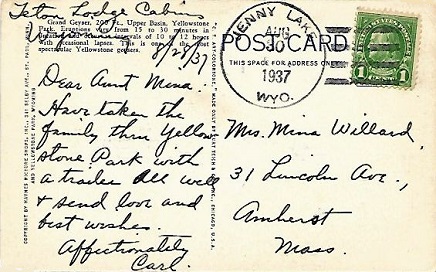 Teton Lodge Cabins
Wyoming
8/29/37
Grand Geyser, 200 Ft., Upper Basin, Yellowstone
Park. Eruptions vary from 15 to 30 minutes in
intervals of 10 to 12 hours
with occasional lapses. This is one of the most
spectacular Yellowstone geysers.
Dear Aunt Mina:
Have taken the
family thru Yellow
stone Park with
a trailer All well
& send love and
best wishes.
Affectionately
Carl.
COPYRIGHT BY HAYNES PICTURE SHOPS, INC., SELBY AVE., ST. PAUL, MINN.
AND YELLOWSTONE PARK, WYOMING
"C. T. ART-COLORTONE" MADE ONLY BY CURT TEICH & CO., INC., CHICAGO, U.S.A.
POSTCARD
THIS SPACE FOR ADDRESS ONLY
JENNY LAKE
AUG
30
1937
WYO.
1 1
Mrs. Mina Willard,
31 Lincoln Ave.,
Amherst
Mass.